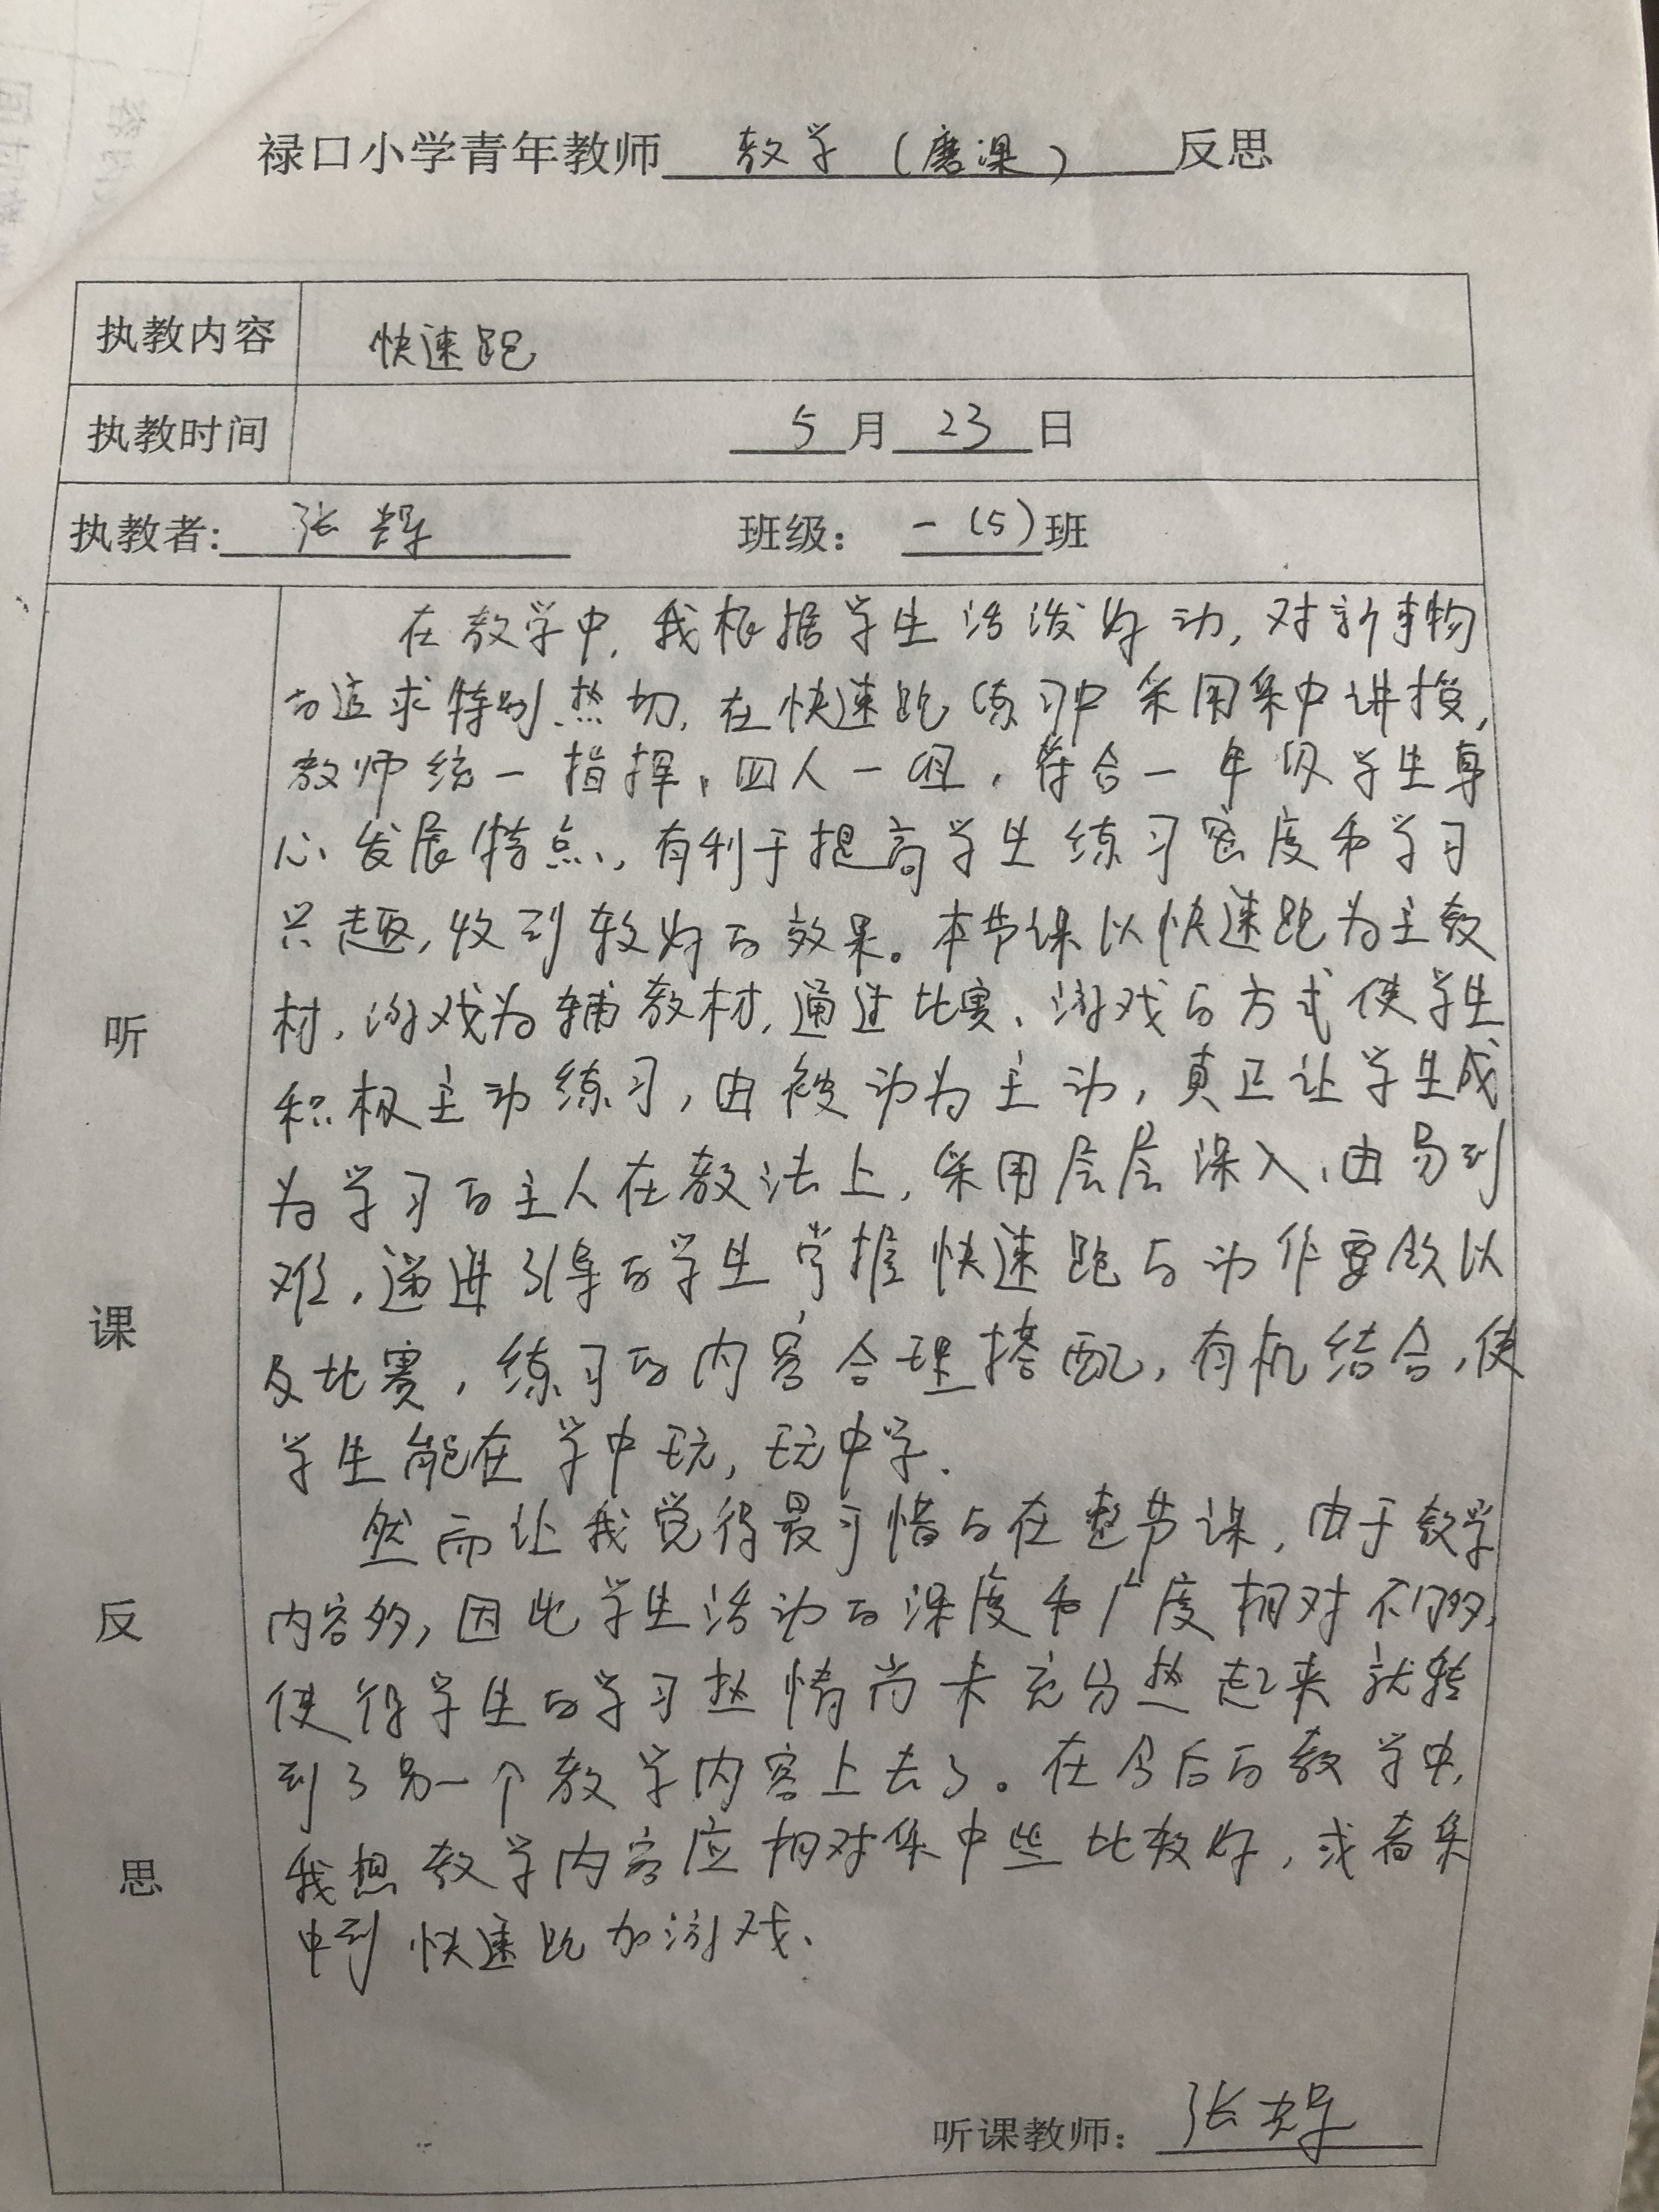 禄口小学青年教师 教学（磨课） 反思
执教内容 快速跑
执教时间 5月23日
执教者: 张辉 班级： 一（5）班
听课反思
在教学中，我根据学生活泼好动，对新事物
的追求特别热切，在快速跑练习中采用集中讲授，
教师统一指挥，四人一组，符合一年级学生身
心发展特点，有利于提高学生练习密度和学习
兴趣，收到较好的效果。本节课以快速跑为主教
材，游戏为辅教材，通过比赛、游戏的方式使学生
积极主动练习，由被动为主动，真正让学生成
为学习的主人在教法上，采用层层深入，由易到
难，递进引导的学生掌握快速跑的动作要领以
及比赛，练习的内容合理搭配，有机结合，使
学生能在学中玩，玩中学.
然而让我觉得最可惜的在整节课，由于教学
内容多，因此学生活动的深度和广度相对不够，
使得学生的学习热情尚未充分热起来就转
到了另一个教学内容上去了。在今后的教学中，
我想教学内容应相对集中些比较好，或者集
中到快速跑加游戏、
听课教师： 张辉